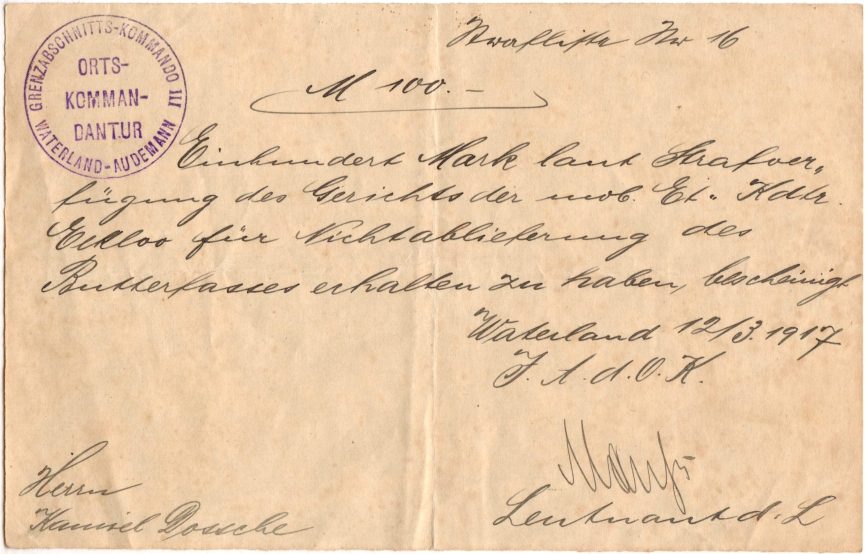 GRENZABSCHNITTS-KOMMANDO III
ORTS-
KOMMAN-
DANTUR
WATERLAND-AUDEMANN
Strafliste Nr 16
M 100.-
Einhundert Mark laut Strafver„
fügung des Gerichts der mob. Et. Kdtr.
Eekloo für Nichtablieferung des
Butterfasses erhalten zu haben, bescheinigt
Waterland 12/3. 1917
J. A. d. O. K.
Leutnant d. L
Herrn
Kamiel Dossche